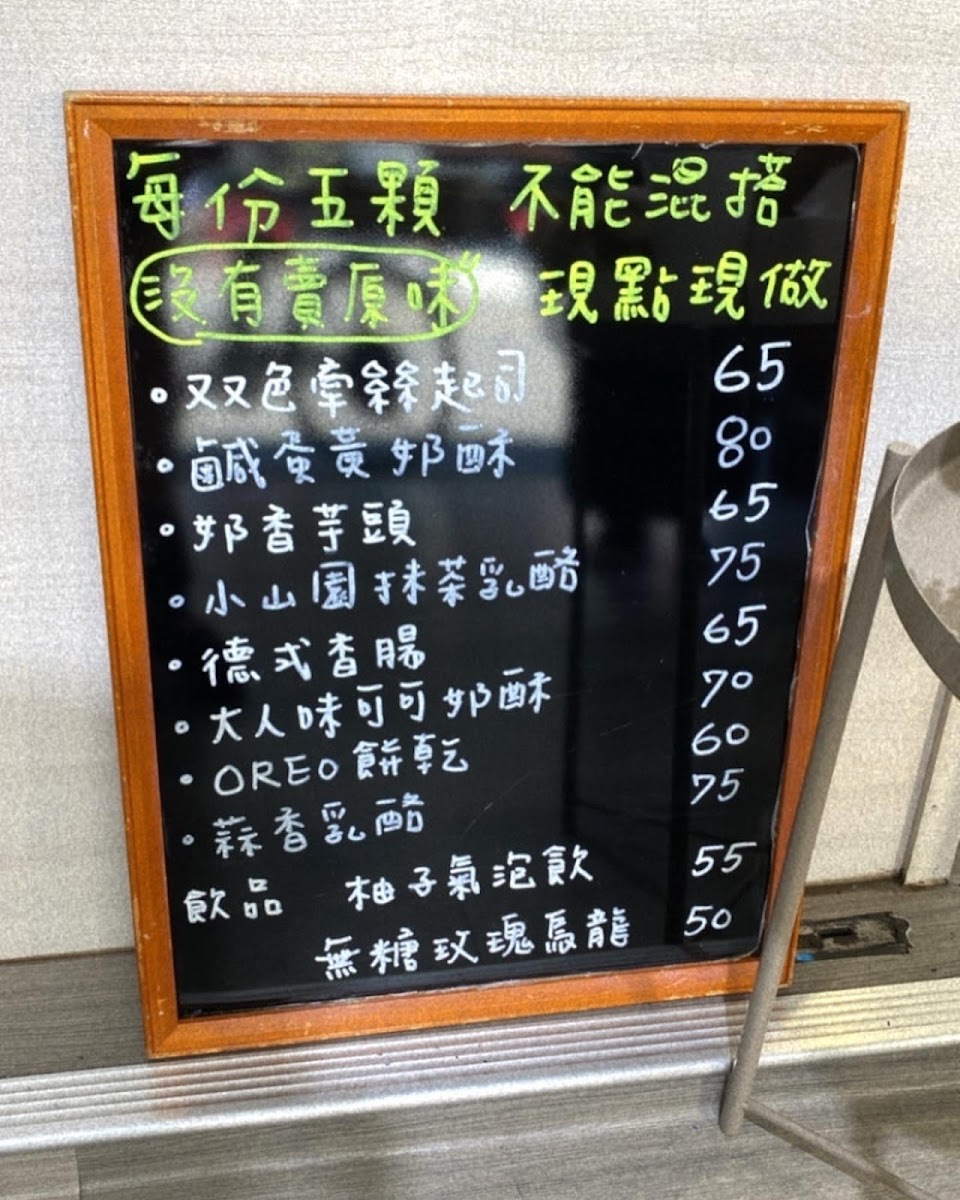 每份五顆 不能混搭
沒有賣原味 現點現做
双色牽絲起司 65
鹹蛋黃奶酥 80
奶香芋頭 65
小山園抹茶乳酪 75
德式香腸 65
大人味可可奶酥 70
OREO餅乾 60
蒜香乳酪 75
飲品 柚子氣泡飲 55
無糖玫瑰烏龍 50